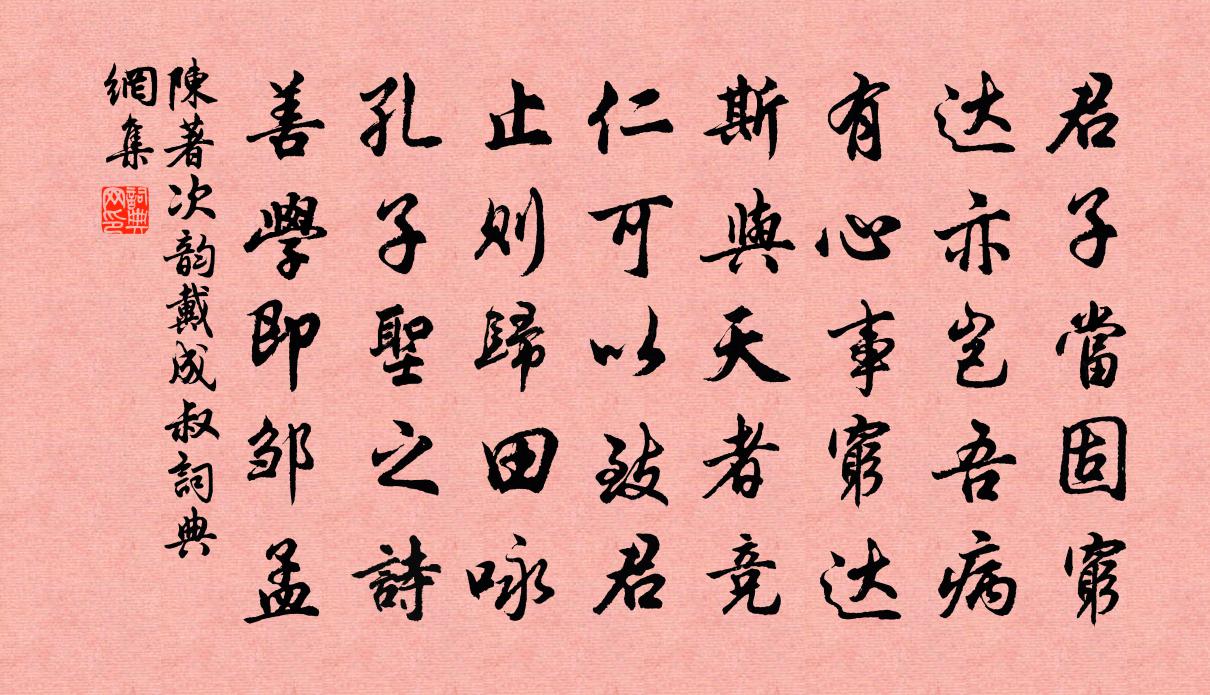 君子當固窮
达亦岂吾病
有心事窮达
斯與天者竞
仁可以致君
止则歸田咏
孔子聖之詩
善學即邹孟
陳著次韵戴成叔詞典
網集
詞典
网印